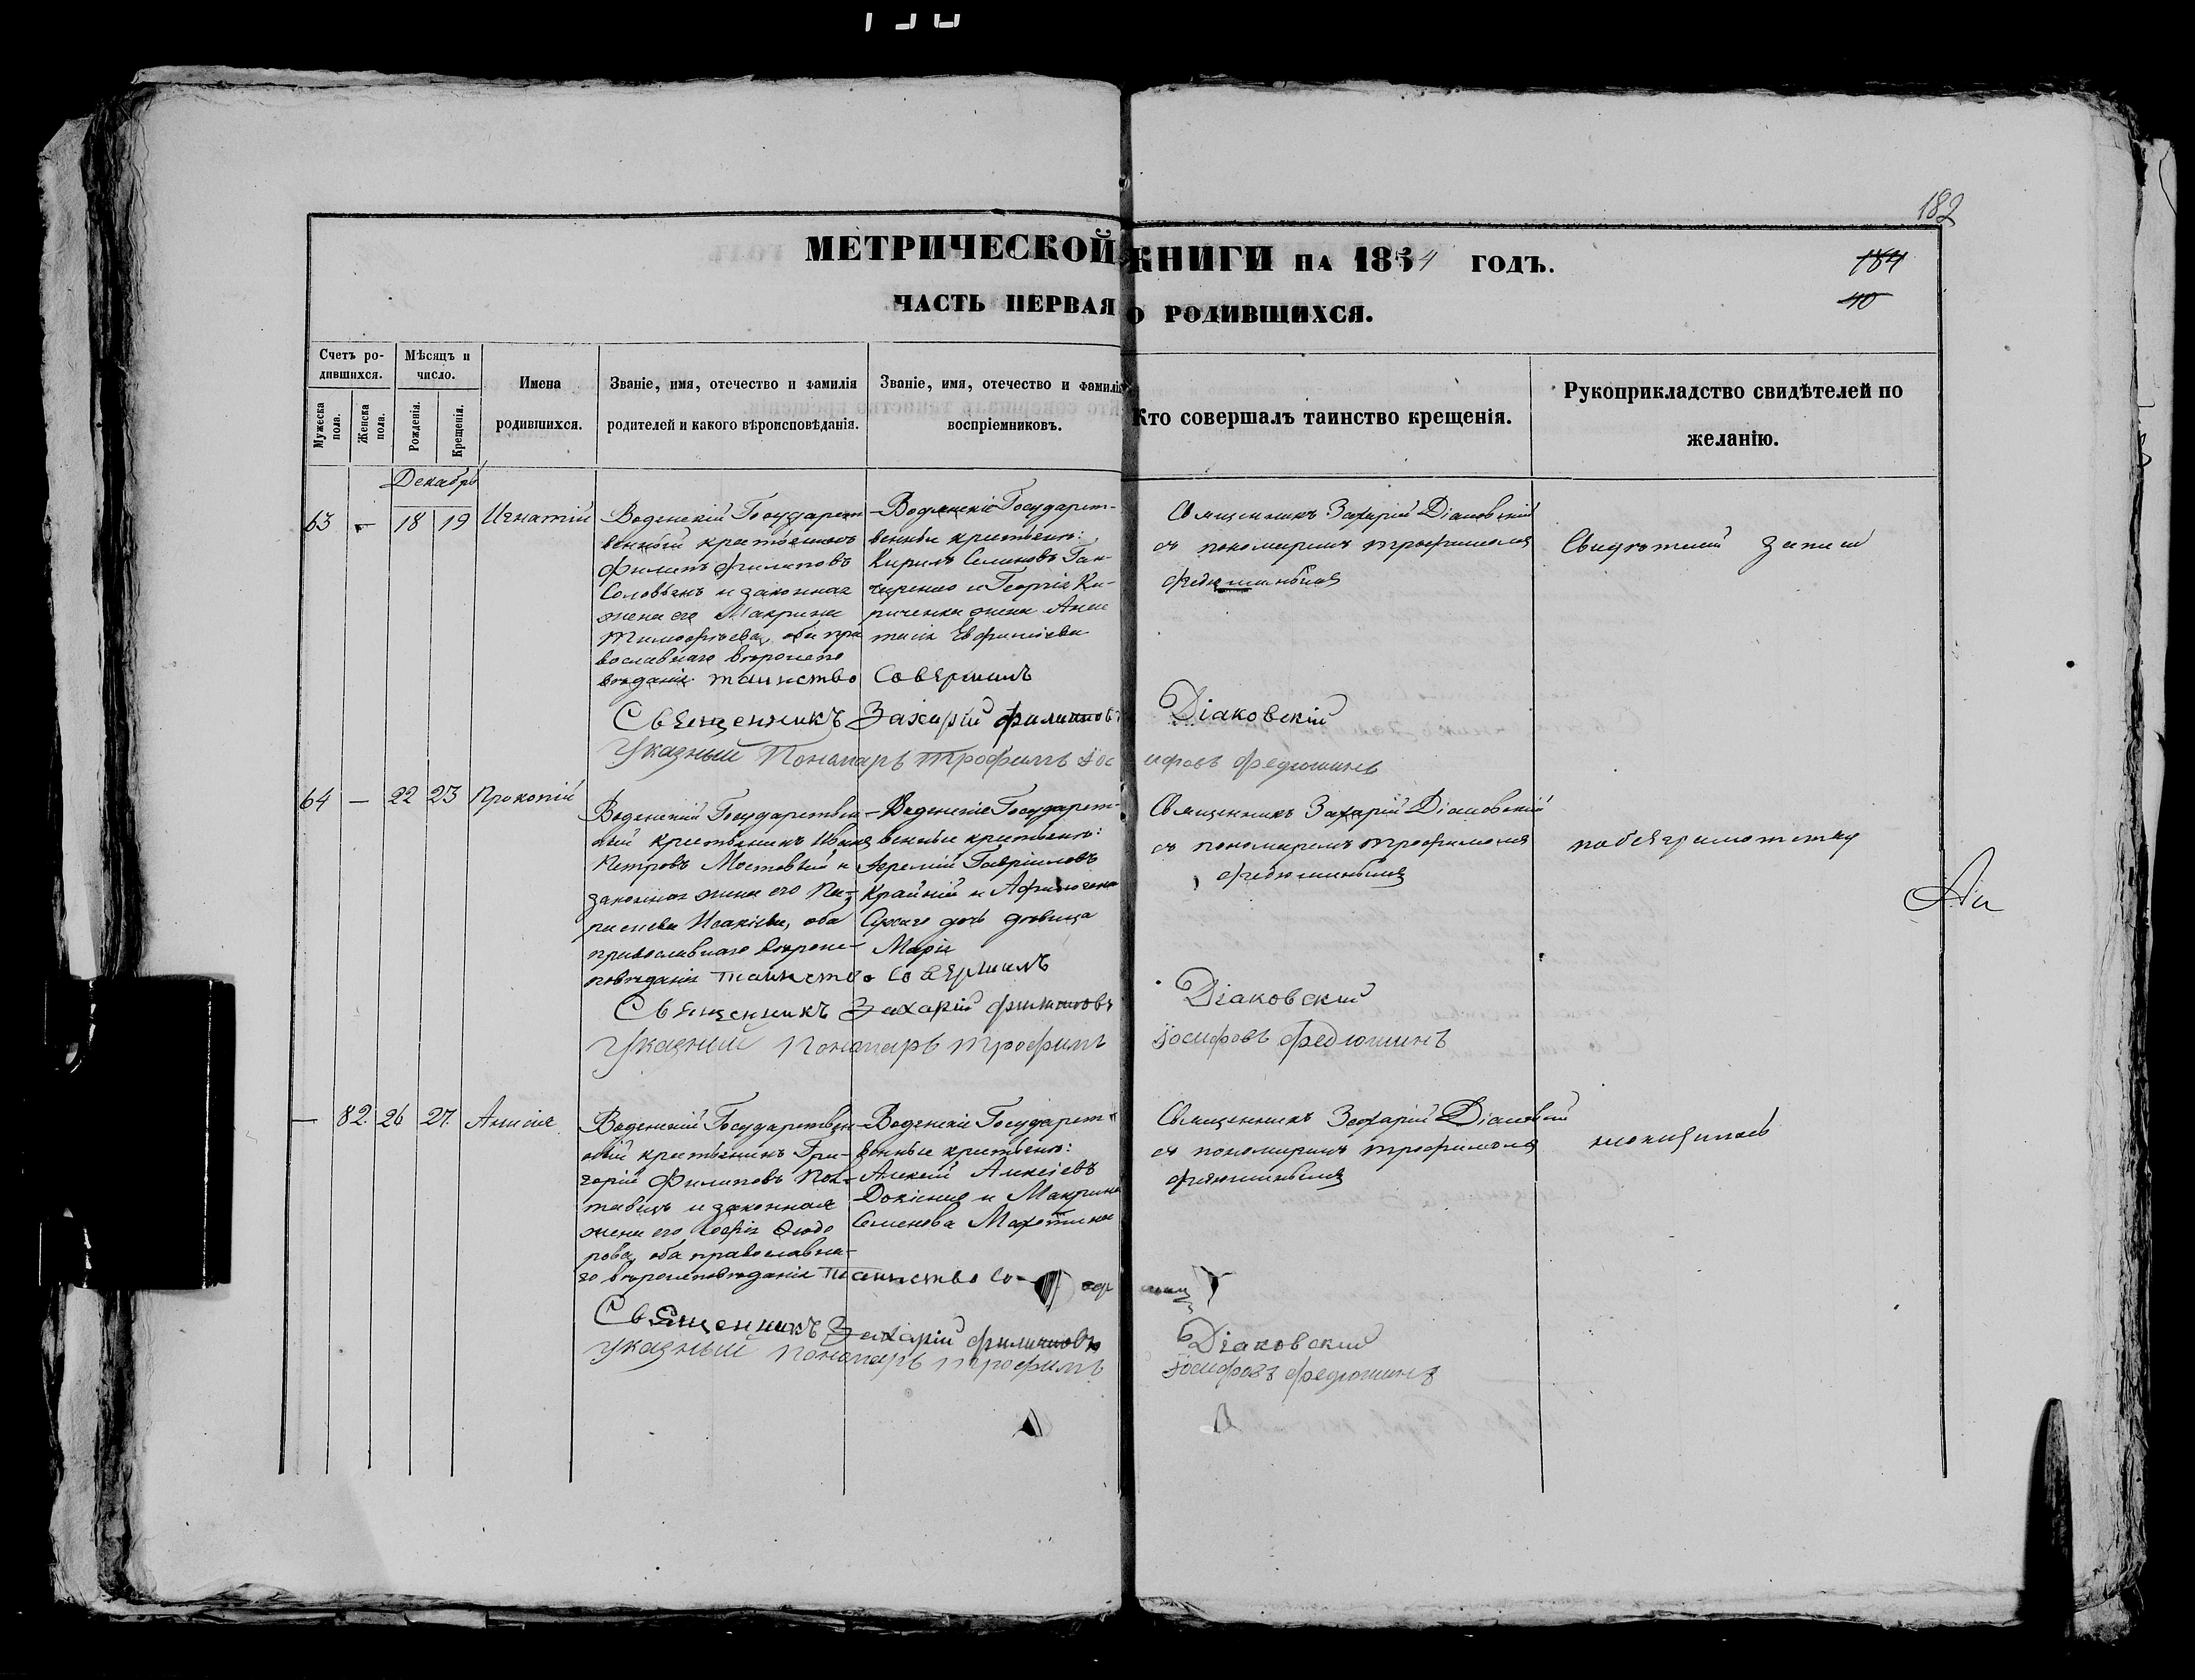 182
МЕТРИЧЕСКОЙ КНИГИ НА 1854 ГОДЪ.
184
40
ЧАСТЬ ПЕРВАЯ О РОДИВШИХСЯ.
Счетъ ро-
дившихся.
Мѣсяцъ и
число.
Мужеска
пола.
Женска
пола.
Рожденія.
Крещенія.
Имена
родившихся.
Званіе, имя, отечество и фамилія
родителей и какого вѣроисповѣданія.
Званіе, имя, отечество и фамилія
воспріемниковъ.
Кто совершалъ таинство крещенія.
Рукоприкладство свидѣтелей по
желанію.
Декабрь
63 - 18 19 Игнатій
Водянскій Государст
венный крестьянинъ
Филипъ Филиповъ
и законная
жена его Макрина
Тимофѣева, оба пра
вославнаго вѣроиспо
вѣданія.
Водянскіе Государст-
венные крестьяне:
Кирилъ Семеновъ Ган-
чаренко и Георгія Ки-
риченка жена Анас
тасія Евфиміева
Священникъ Захарій Діаковскій
съ пономаремъ Трофимомъ
Федюшинымъ
таинство Совершилъ
Священникъ Захарій Филиповъ Діаковскій
Указный Пономарь Трофимъ Іосифовъ Федюшинъ
64 — 22 23 Прокопій
Водянскій Государствен
ный крестьянинъ Иванъ
Петровъ Мостовый и
законная жена его Па-
раскева Исакіева, оба
православнаго вѣроис-
повѣданія
Водянскіе Государст-
венные крестьяне:
Іеремій Гавріиловъ
Крайній и
дочь дѣвица
Марія
Священникъ Захарій Діаковскій
съ пономаремъ Трофимомъ
Федюшинымъ
таинство Совершилъ
Священникъ Захарій Филиповъ Діаковскій
Указный Пономарь Трофимъ Іосифовъ Федюшинъ
— 82. 26 27. Анисія
Водянскій Государствен
ный крестьянинъ Гри-
горій Филиповъ Пол-
тавецъ и законная
жена его Софія Ѳедо
рова, оба православна-
го вѣроисповѣданія
Водянскіе Государст
венные крестьяне:
Алексій Алексіевъ
и Макрина
Семенова
Священникъ Захарій Діаковскій
съ пономаремъ Трофимомъ
Федюшинымъ
таинство Со
Священникъ Захарій Филиповъ Діаковскій
Указный Пономарь Трофимъ Іосифовъ Федюшинъ